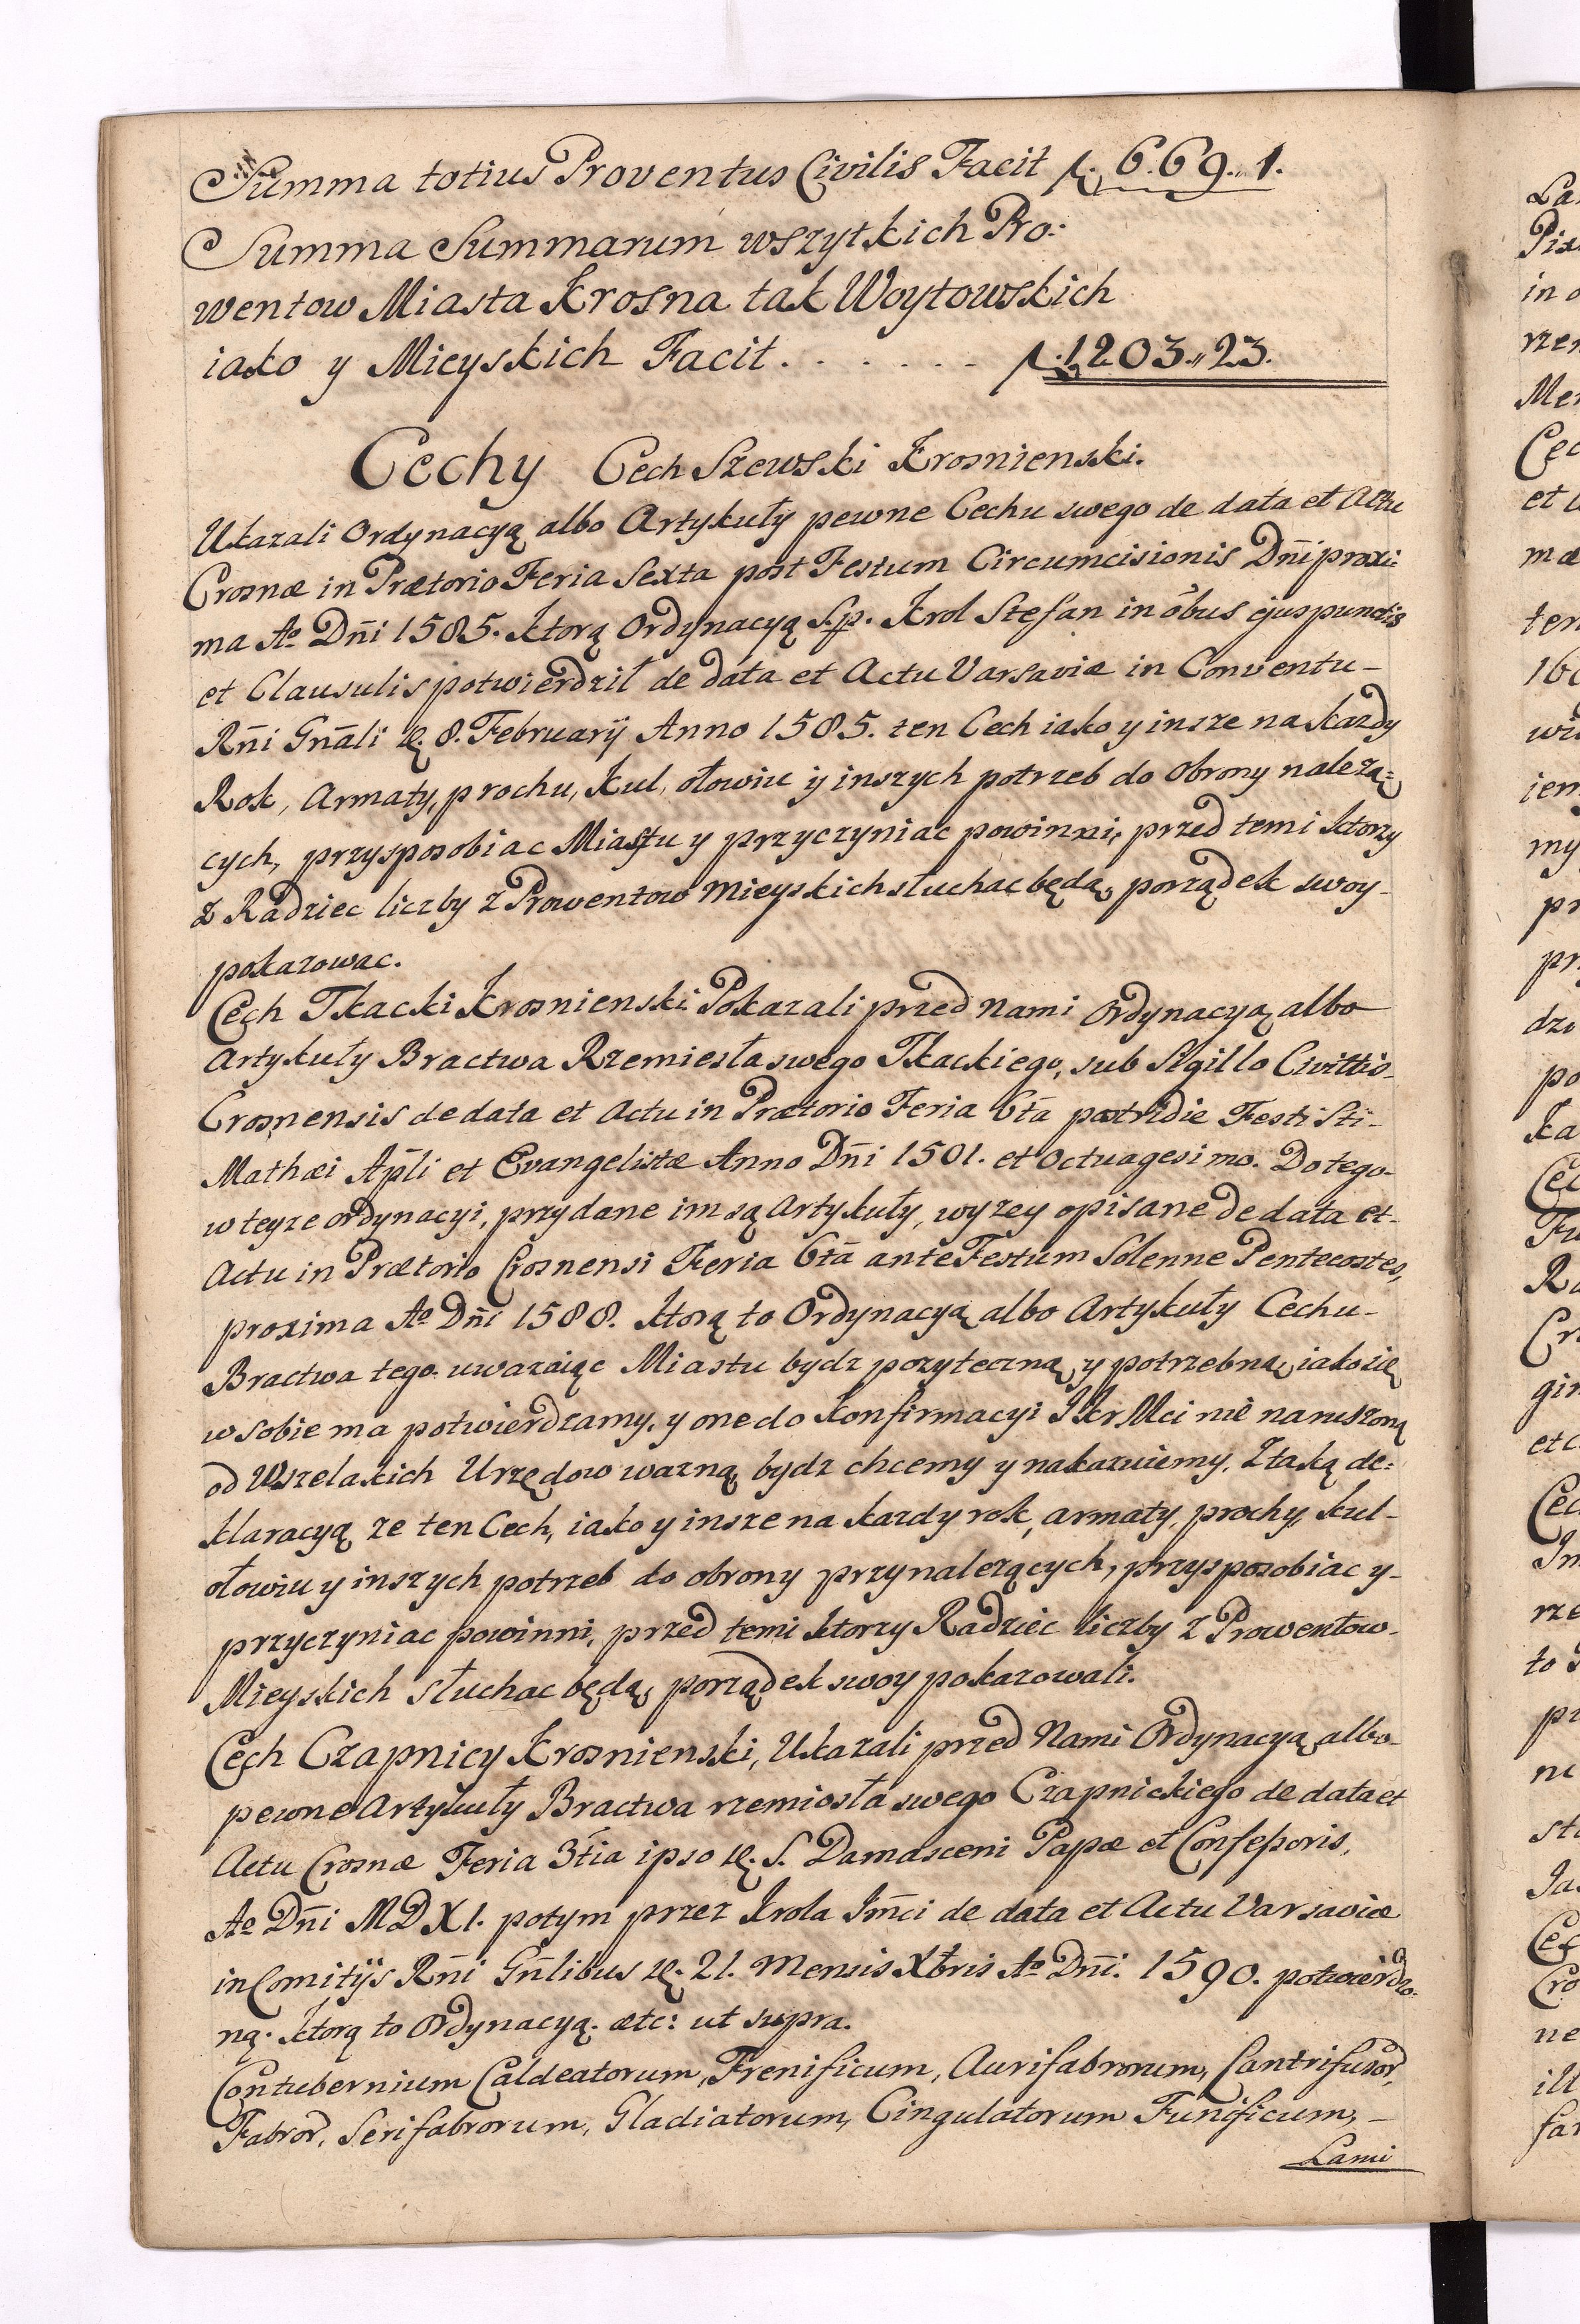 Summa totius Proventus Civilis Facit f. 669.,1.
Summa Summarum wszytkich Pro:
wentow Miasta Krosna tak Woytowskich
iako y Mieyskich Facit . . . . . . . f. 1203.,23.
Cechy Cech Szewski Krosnienski.
Ukazali Ordynacyą albo Artykuły pewne Cechu swego de data et Actu
Crosnæ in Prætorio Feria Sexta post Festum Circumcisionis Dñi proxi:
ma Ao Dñi 1585. Ktorą Ordynacyą S.p. Krol Stefan in õbus ejus punctis
et Clausulis potwierdził de data et Actu Varsaviæ in Conventu-
Rñi Gñali 8. Februarij Anno 1585. ten Cech iako y insze na kazdy
Rok, Armaty, prochu, Kul, ołowiu y inszych potrzeb do Obrony naleza:
cych, przysposobiac Miastu y przyczyniac powinni, przed temi ktorzy
z Radziec liczby z Prowentow Mieyskich słuchac będą, porządek swoy-
pokazowac.
Cech Tkacki Krosnienski Pokazali przed Nami Ordynacyą albo
Artykuły Bractwa Rzemiesła swego Tkackiego, sub Sigillo Civittis-
Crosnensis de data et Actu in Prætorio Feria 6tã postridie Festi Sti-
Mathæi Apli et Evangelistæ Anno Dñi 1501. et Octuagesimo. Do tego-
w teyze Ordynacyi, przydane im są Artykuły, wyzey opisane de data et-
Actu in Prætorio Crosnensi Feria 6tã ante Festum Solenne Pentecostes,
proxima Ao Dñi 1588. Ktorą to Ordynacyą albo Artykuły Cechu-
Bractwa tego. uwazaiąc Miastu bydz pozyteczną y potrzebną, iako się
w sobie ma potwierdzamy, y one do Konfirmacyi JKr Mci nie naruszoną
od Wszelakich Urzędow wazną bydz chcemy y nakazuiemy, Ztaką de:
klaracyą ze ten Cech, iako y insze na kazdy rok, armaty, prochy, kul-
ołowiu y inszych potrzeb do obrony przynalezących, przysposobiac y-
przyczyniac powinni, przed temi ktorzy Radziec liczby z Prowentow-
Mieyskich słuchac będą, porządek swoy pokazowali.
Cech Czapnicy Krosnienski, Ukazali przed Nami Ordynacyą albo-
pewne Artykuły Bractwa rzemiosła swego Czapnickiego de data et
Actu Crosnæ Feria 3tia ipso S. Damasceni Papæ et Confessoris,
Ao Dñi MDXI. potym przez Krola Jmci de data et Actu Varsaviæ
in Comitijs Rñi Gñlibus 21. Mensis Xbris Ao Dñi. 1590. potwierdzo-
ną. Ktorą to Ordynacyą. etc: ut supra.
Contubernium Caldeatorum, Frenificum, Aurifabrorum, Cantrifusor,
Fabror, Serifabrorum, Gladiatorum, Cingulatorum Funificum, -
Lami